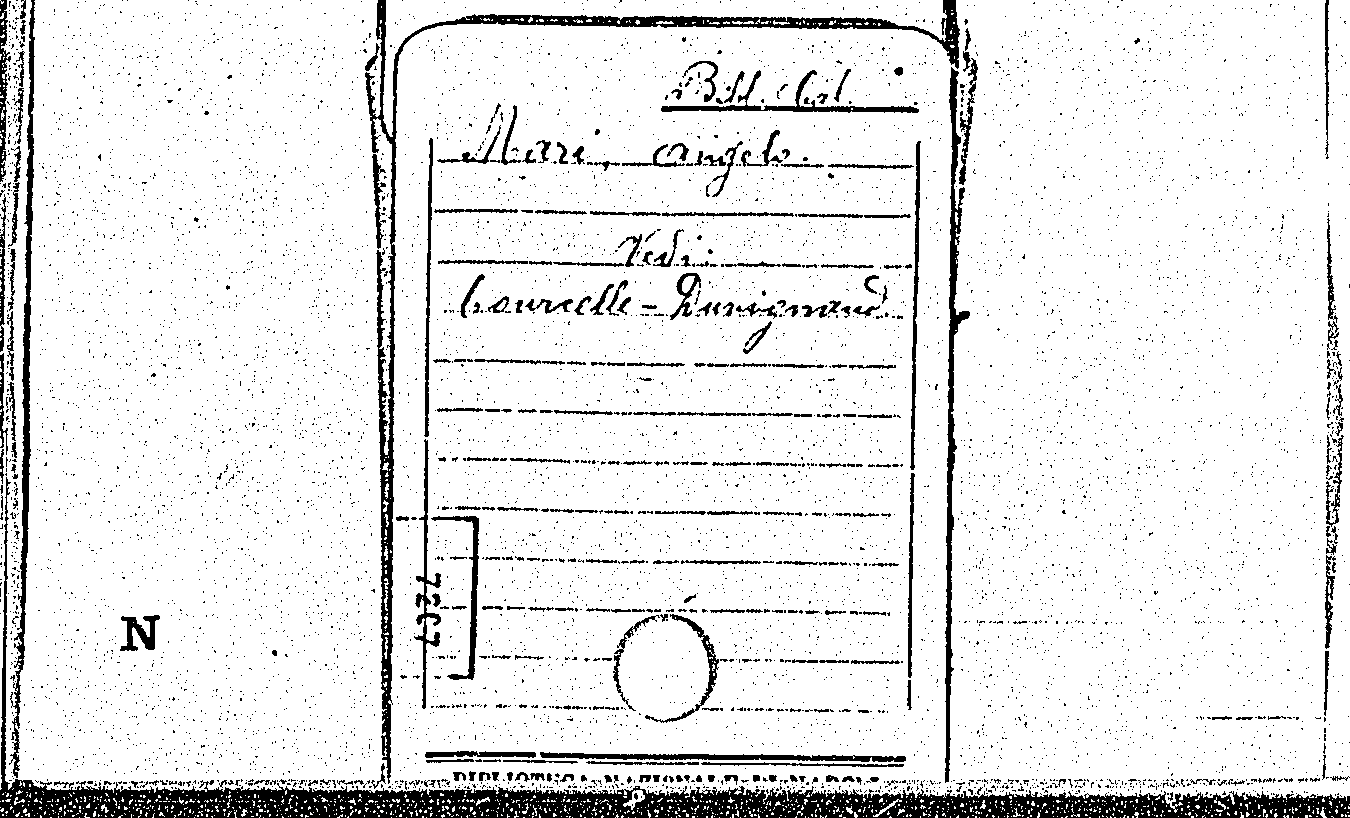 Bibl. Cart.
Mari, Angelo.
Vedi:
Courcelle - Dunignaud.
7207
N
BIBLIOTECA NAZIONALE DI NAPOLI